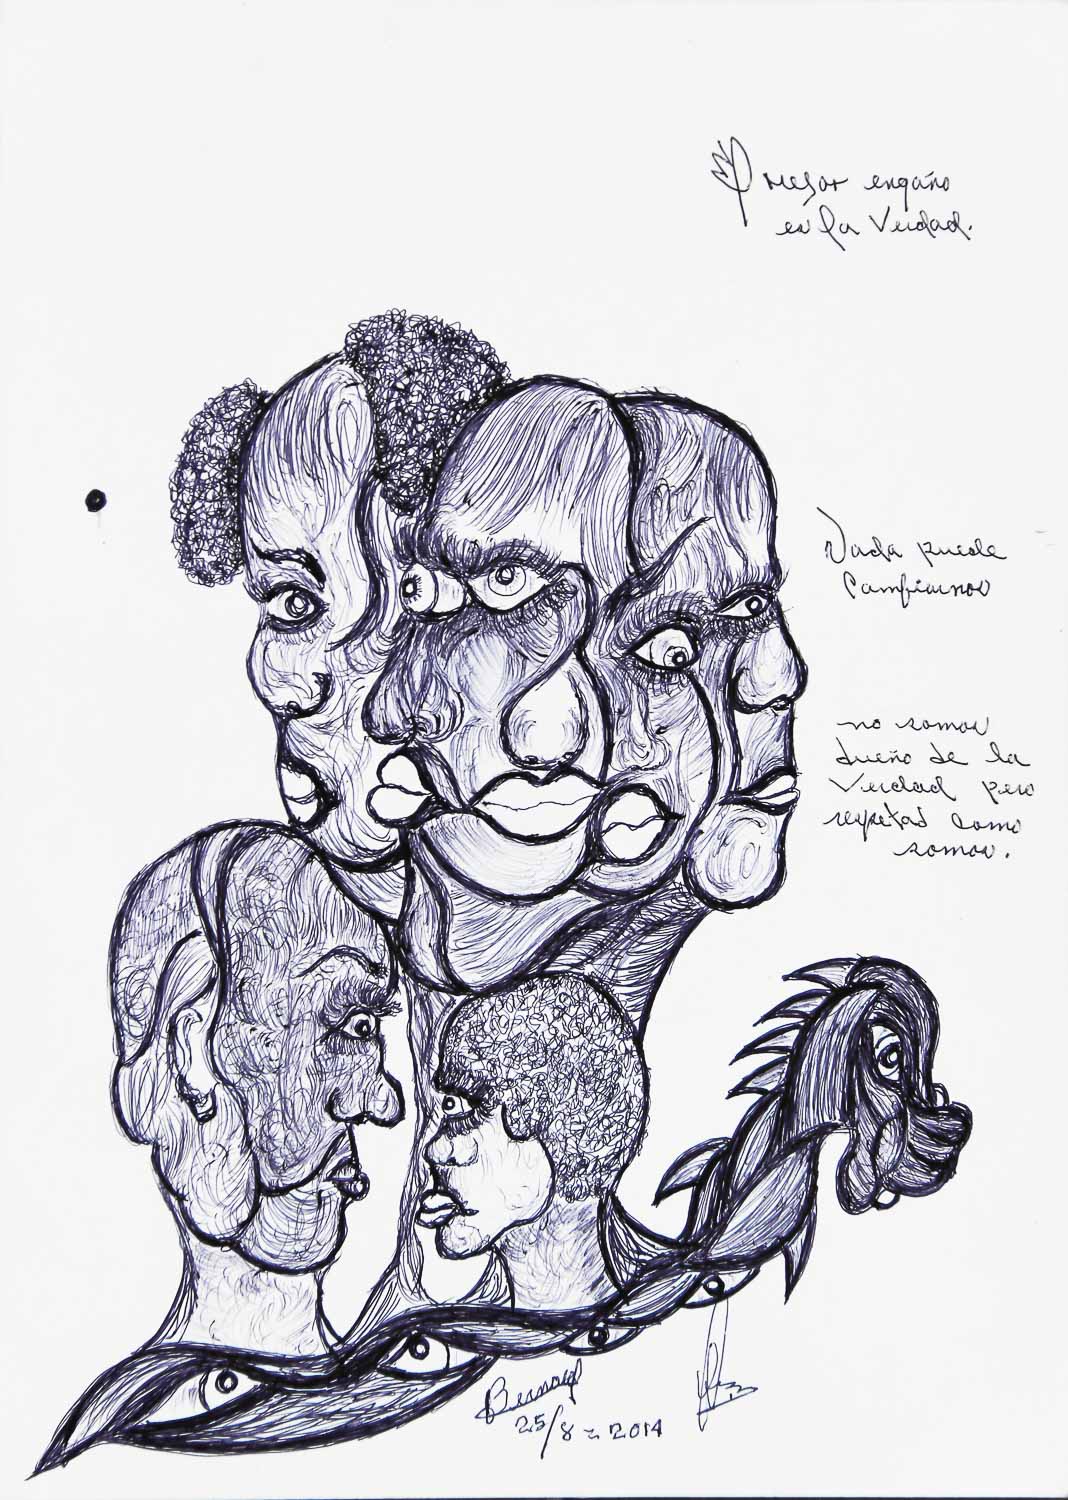 El mejor engaño
es la Verdad.
Nada puede
Cambiarnos
no somos
dueño de la
Verdad pero
respetad como
somos.
25/8-2014